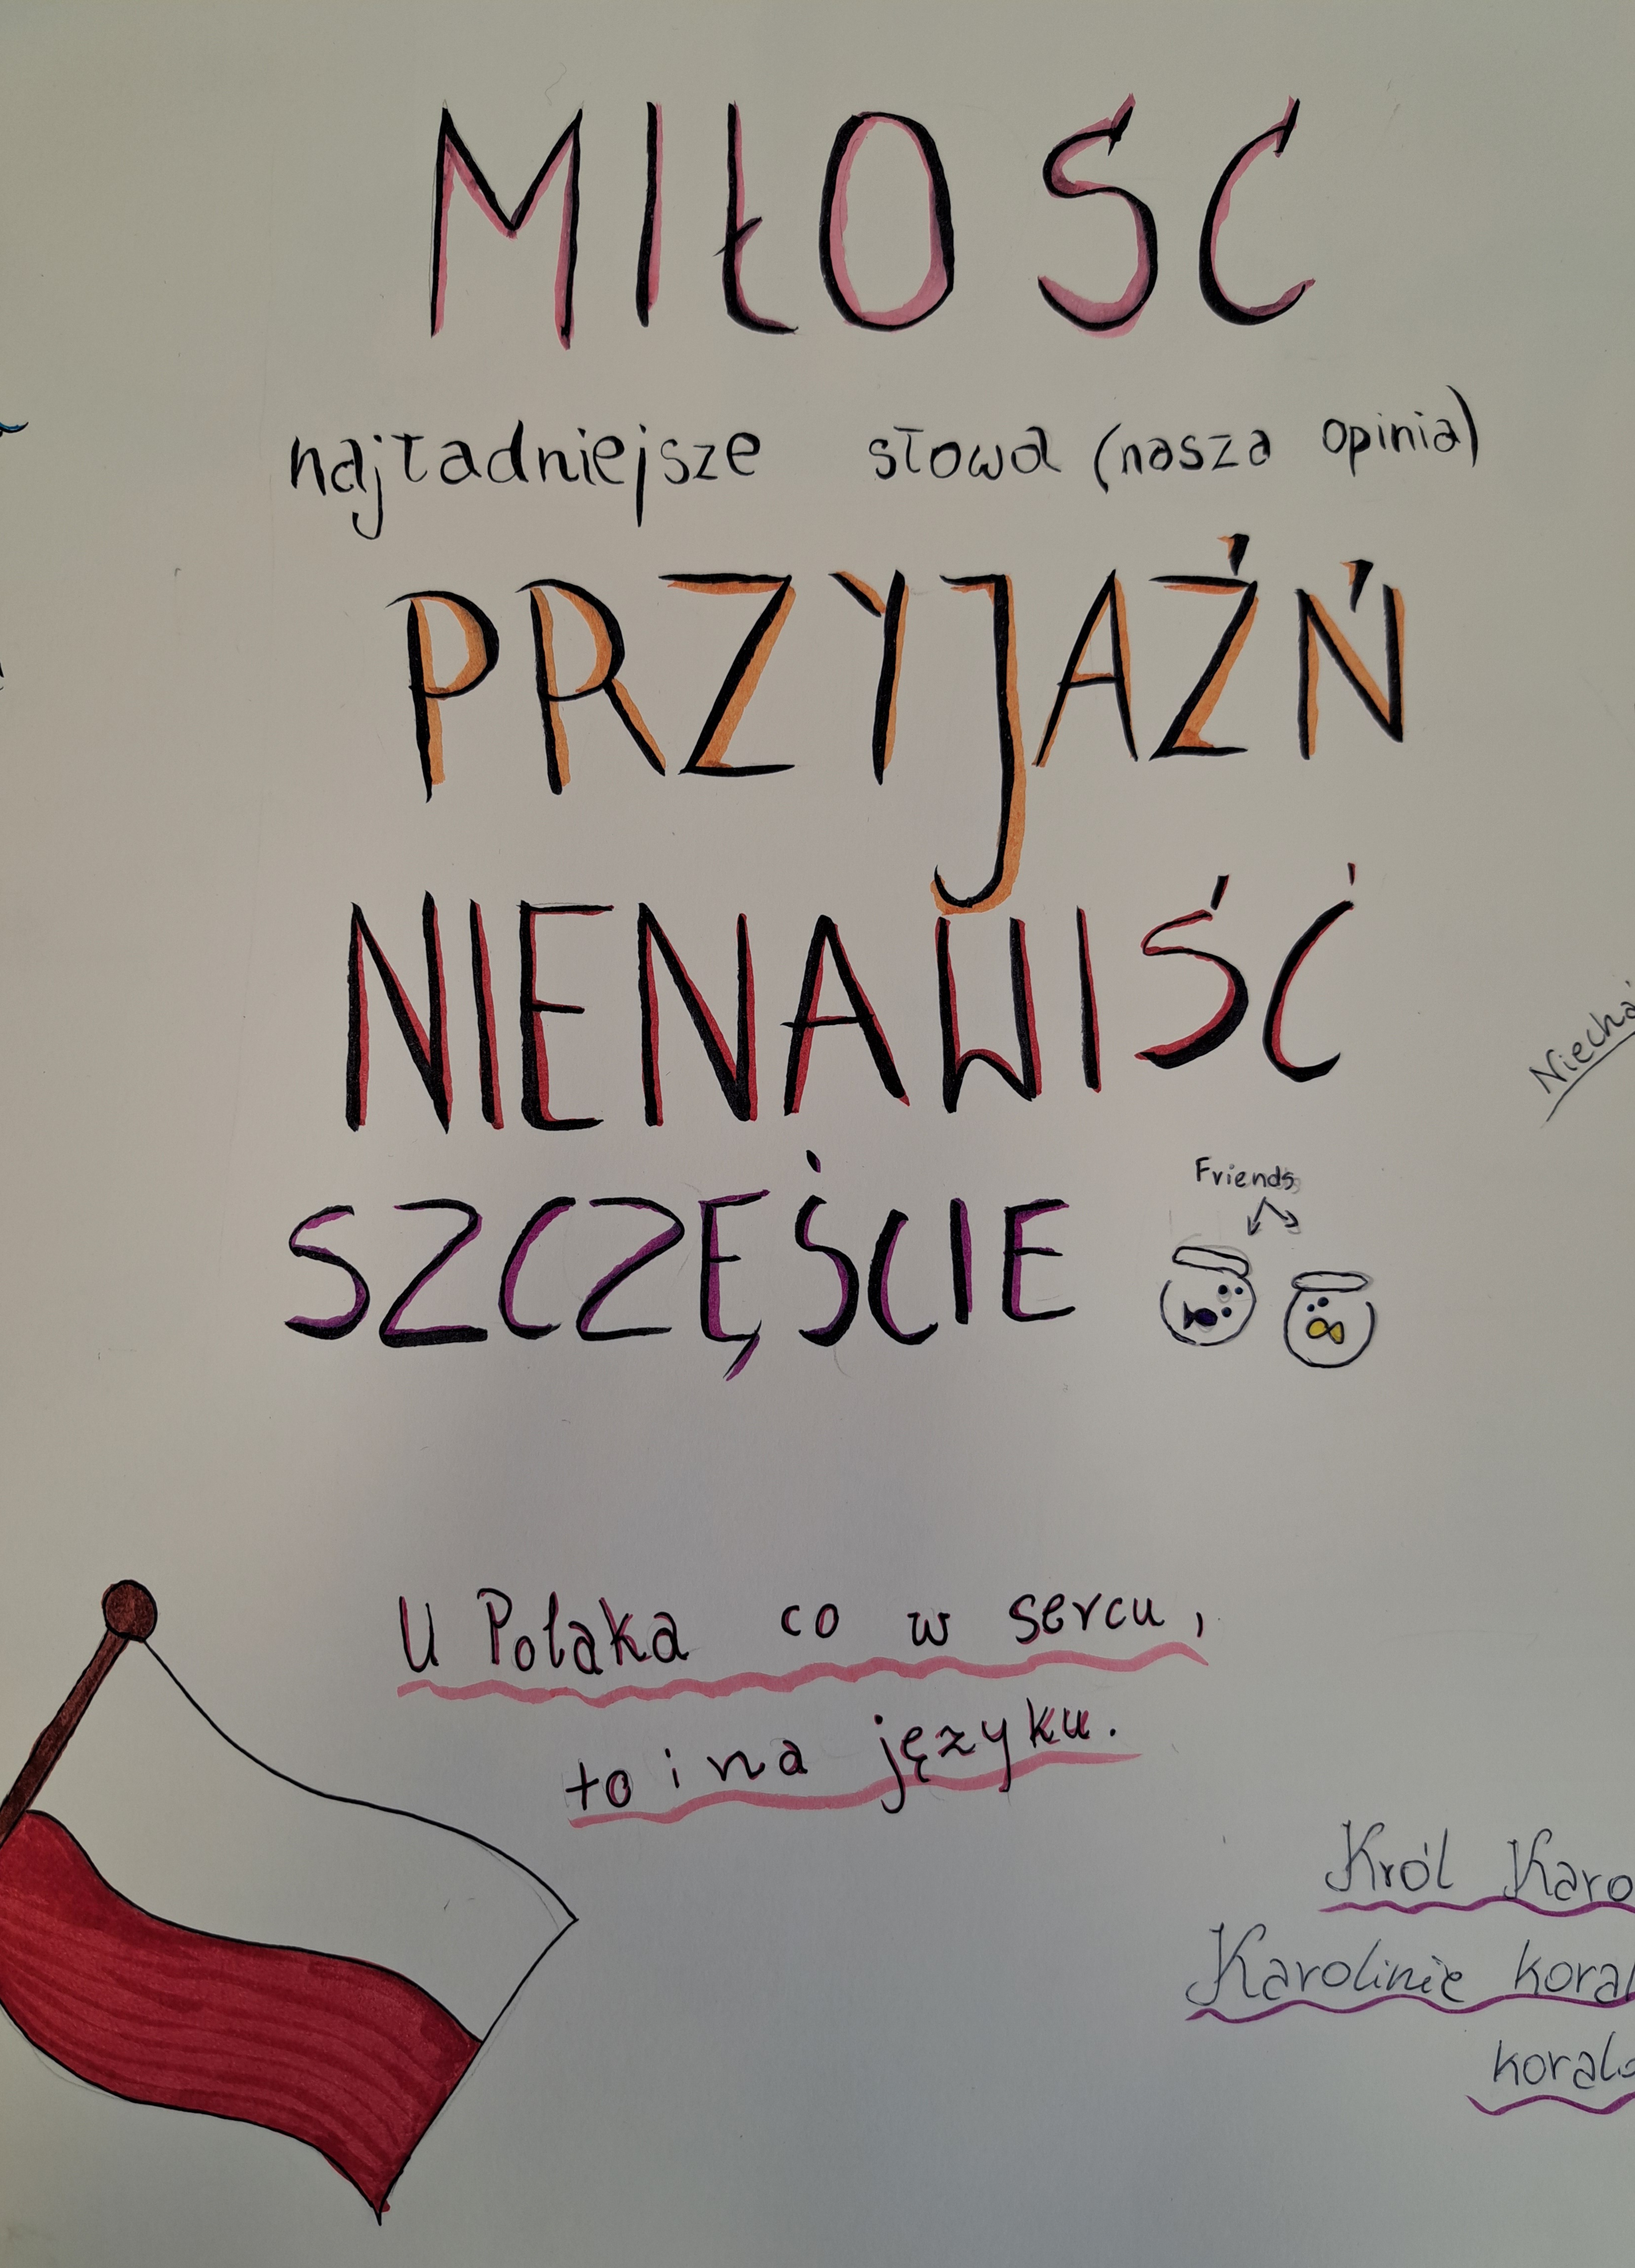 MIŁOŚĆ
najładniejsze słowa (nasza opinia)
PRZYJAŹŃ
NIENAWIŚĆ
SZCZĘŚCIE
Friends
U Polaka co w sercu,
to i na języku.
Król
Karolinie